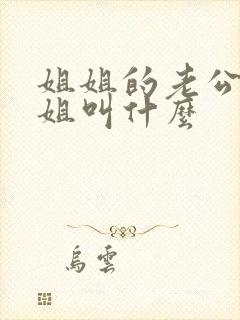 姐姐的老公
姐叫什麼
烏雲